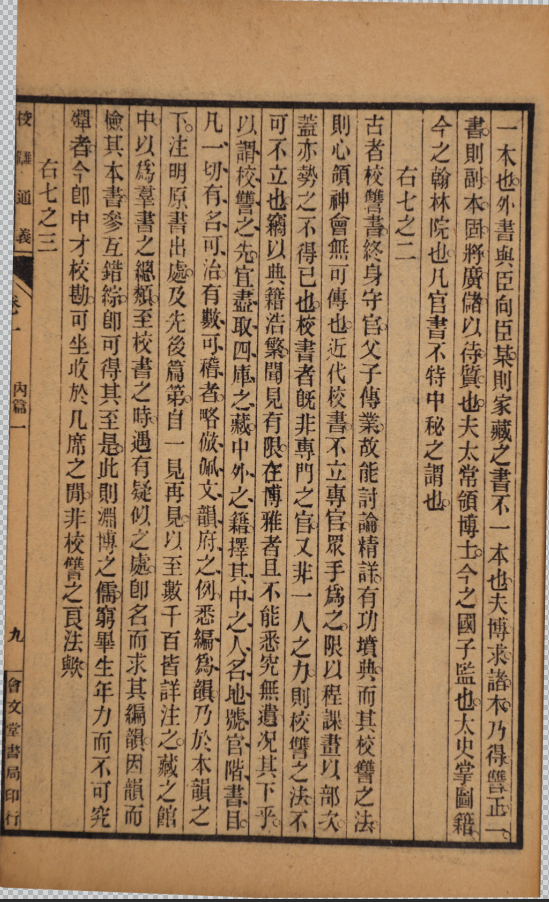 一本也外書與臣向臣某則家藏之書不一本也夫博求諸本乃得讐正一
書則副本固將廣儲以待質也夫太常領博士今之國子監也太史掌圖籍
今之翰林院也凡官書不特中秘之謂也
右七之二
古者校讐書終身守官父子傳業故能討論精詳有功墳典而其校讐之法
則心領神會無可傳也近代校書不立專官眾手爲之限以程課畫以部次
蓋亦勢之不得已也校書者旣非專門之官又非一人之力則校讐之法不
可不立也竊以典籍浩繁聞見有限在博雅者且不能悉究無遺况其下乎
以謂校讐之先宜盡取四庫之藏中外之籍擇其中之人名地號官階書目
凡一切有名可治有數可稽者略倣佩文韻府之例悉編爲韻乃於本韻之
下注明原書出處及先後篇第自一見再見以至數千百皆詳注之藏之館
中以爲羣書之總類至校書之時遇有疑似之處卽名而求其編韻因韻而
檢其本書參互錯綜卽可得其至是此則淵博之儒窮畢生年力而不可究
殫者今卽中才校勘可坐收於几席之閒非校讐之良法歟
右七之三
校讎通義
卷一
內篇一
九
會文堂書局印行